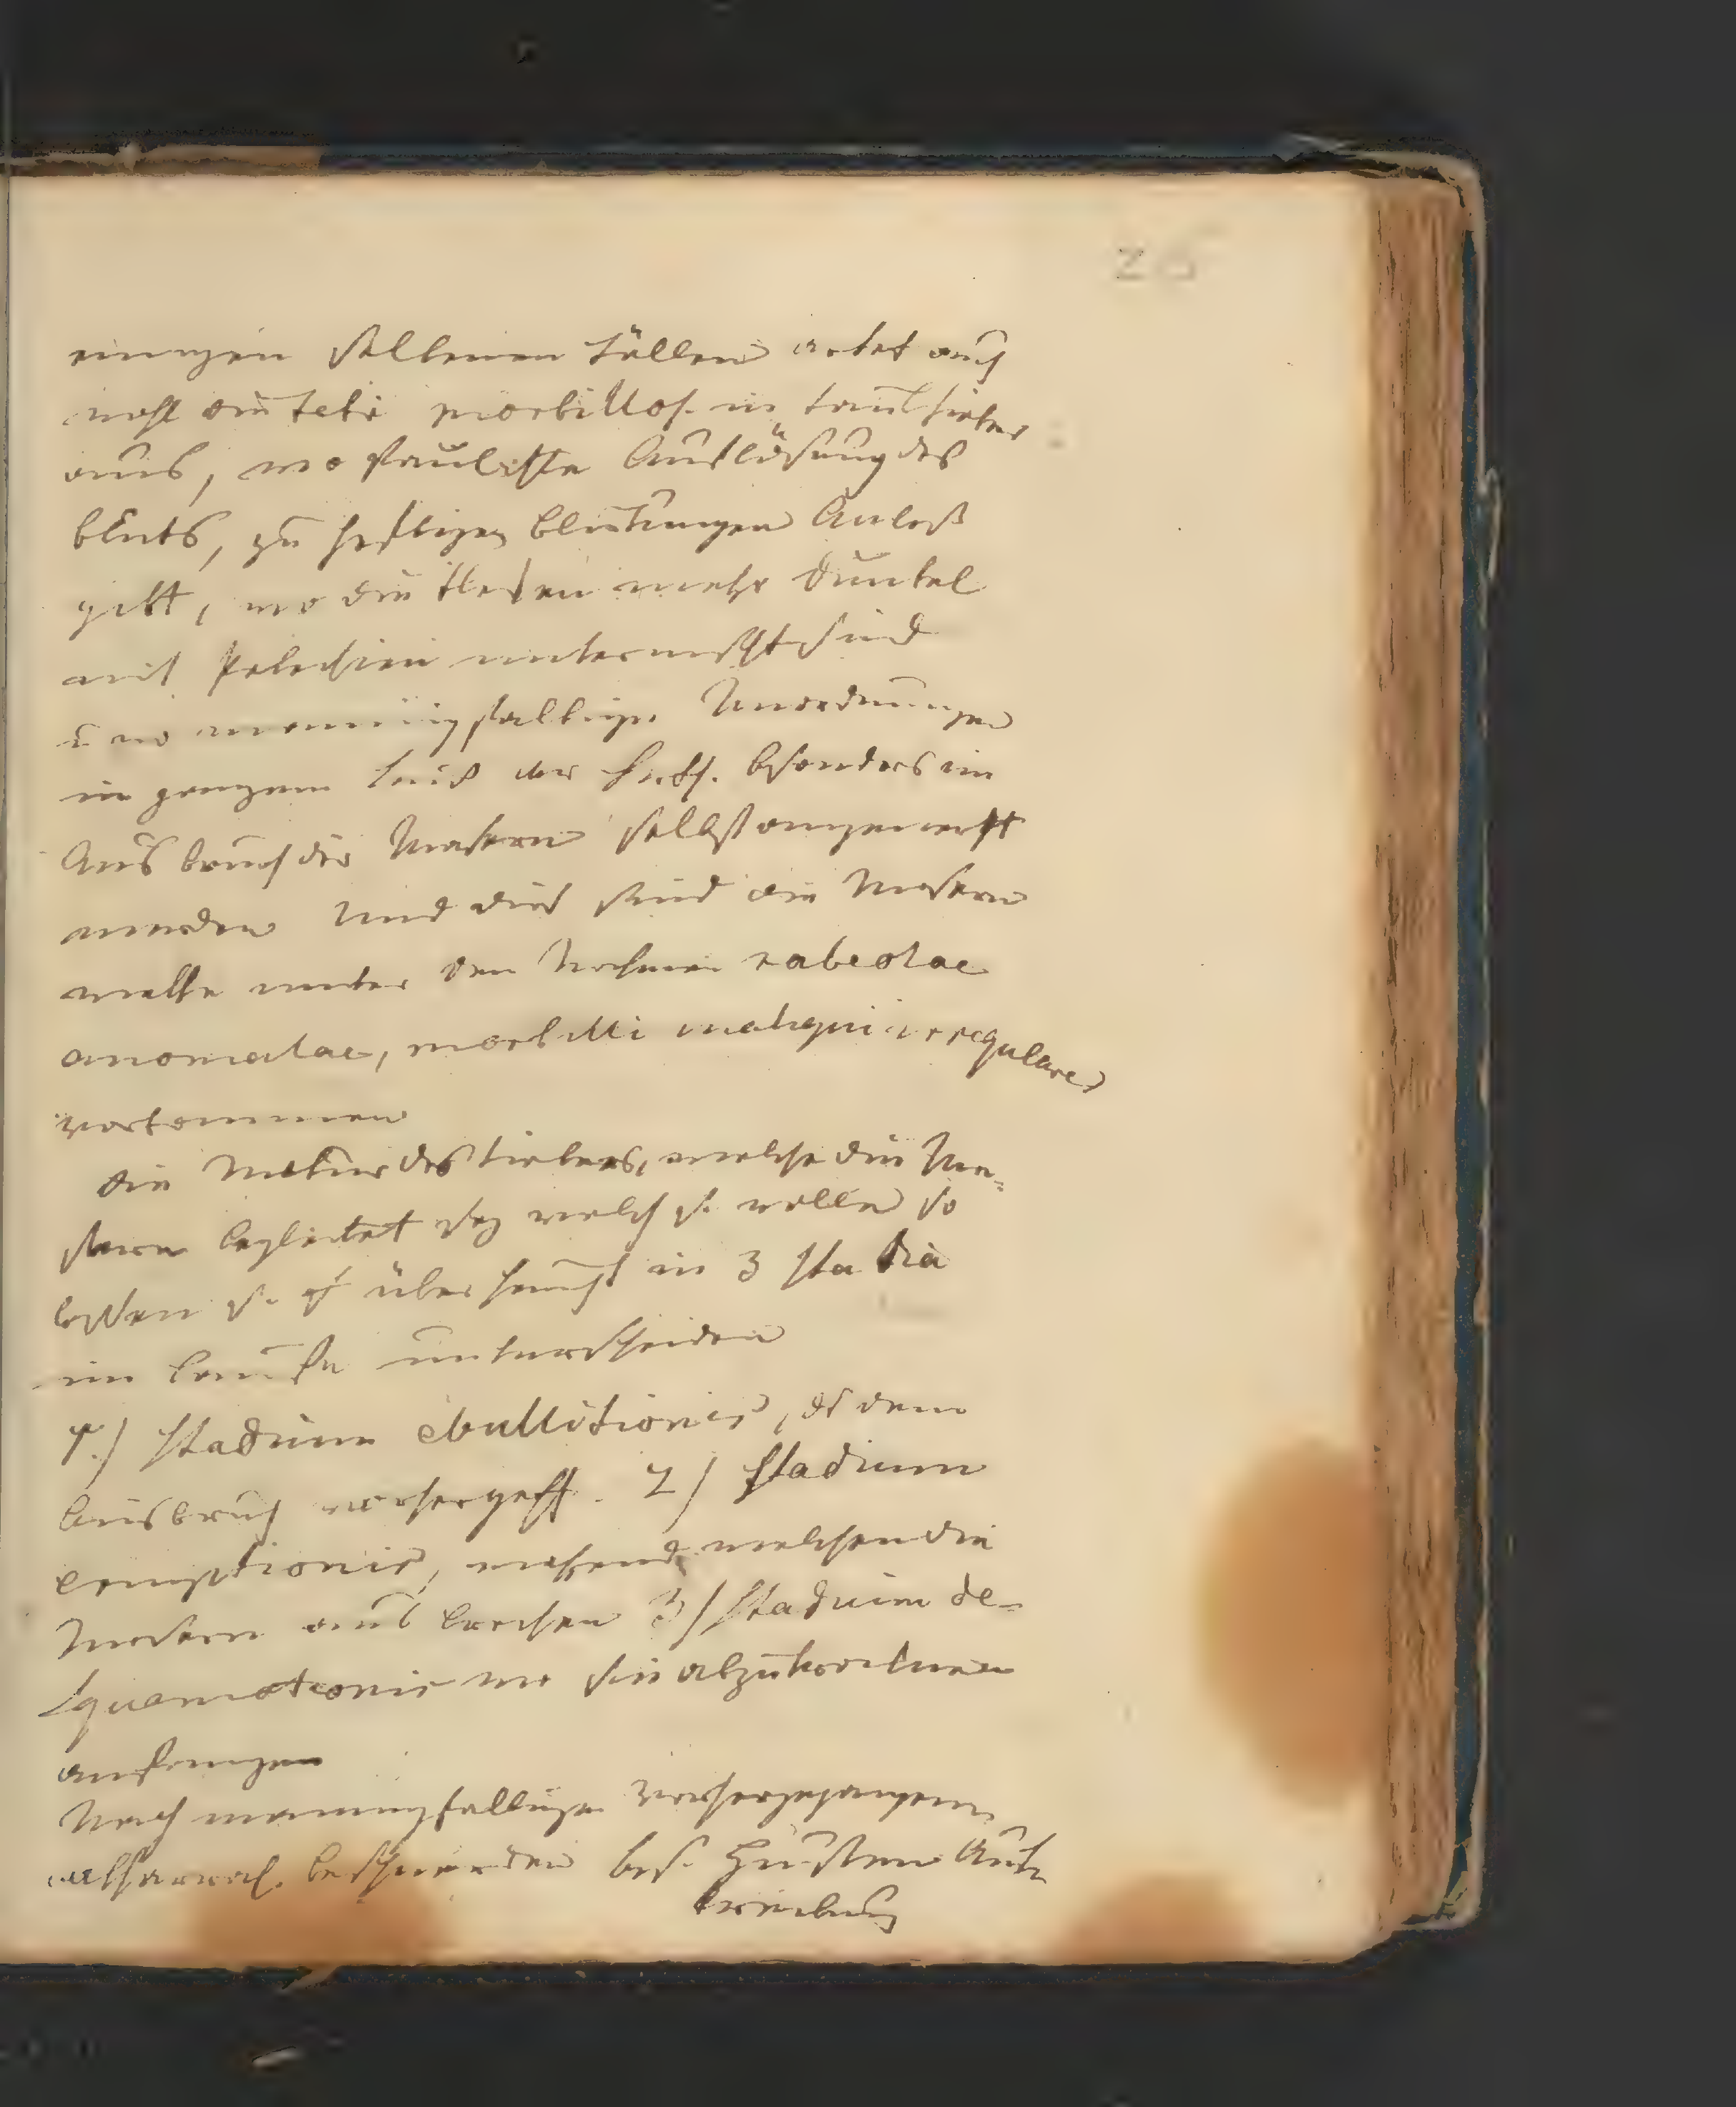 26
einigen seltenen Fällen artet auch
wohl die febr. morbillos. in Faulfieber
aus, wo faulichte Auflösung des
bluts, zu heftigen blutungen Anlaß
gibt, wo die flecken mehr dunkel
mit Petechien untermischt sind
u wo mannigfaltige Unordnungen
im ganzen lauf der besonders im
Ausbruch der Masern selbst angemerkt
werden Und dies sind die Masern
welche unter den Nahmen rabeolae
anomalae, morbilli maligni irregulares
vorkommen
die Natur des fiebers, welche die Ma-
sern begleitet sey welch s. wolle so
lassen s. überhaupt in 3 stadia
im laufe unterscheiden
1.) stadium ebullitionis, dem
Ausbruch vorhergeht. 2) stadium
eruptionis, während welchen die
Masern aus brechen 3) stadium de-
squamationis wo sie abzutrocknen
anfangen
Nach mannigfaltigen vorhergegangenen
catharral. beschwerden bes. Husten Auf-
treibung